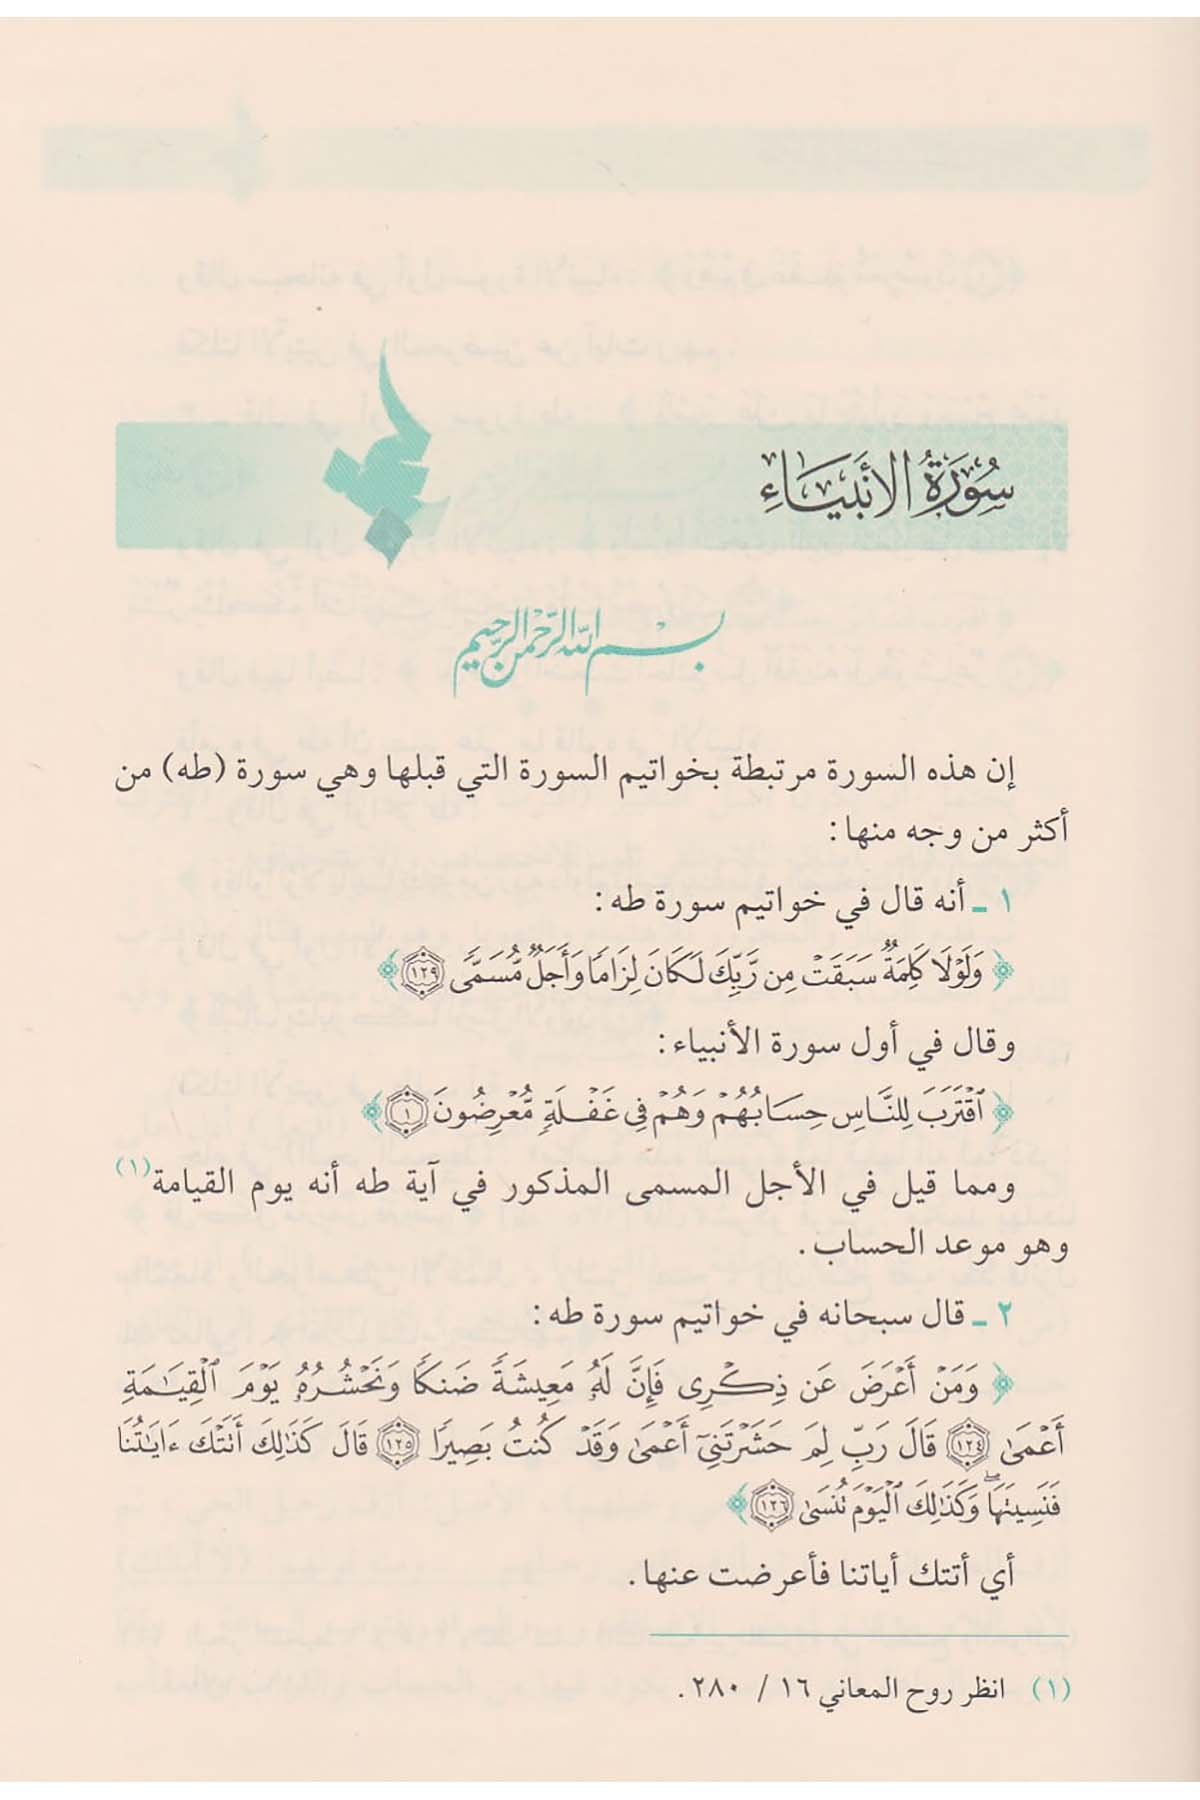 سُورَةُ الأَنبِيَاءِ
بسم الله الرحمن الرحيم
إن هذه السورة مرتبطة بخواتيم السورة التي قبلها وهي سورة (طه) من
أكثر من وجه منها:
١ ـ أنه قال في خواتيم سورة طه:
﴿ وَلَوْلَا كَلِمَةٌ سَبَقَتْ مِن رَّبِّكَ لَكَانَ لِزَامًا وَأَجَلٌ مُّسَمًّى ١٢٩ ﴾
وقال في أول سورة الأنبياء:
﴿ ٱقْتَرَبَ لِلنَّاسِ حِسَابُهُمْ وَهُمْ فِى غَفْلَةٍ مُّعْرِضُونَ ١ ﴾
ومما قيل في الأجل المسمى المذكور في آية طه أنه يوم القيامة(١)
وهو موعد الحساب.
٢ ـ قال سبحانه في خواتيم سورة طه:
﴿ وَمَنْ أَعْرَضَ عَن ذِكْرِى فَإِنَّ لَهُۥ مَعِيشَةً ضَنكًا وَنَحْشُرُهُۥ يَوْمَ ٱلْقِيَـٰمَةِ
أَعْمَىٰ ١٢٤ قَالَ رَبِّ لِمَ حَشَرْتَنِىٓ أَعْمَىٰ وَقَدْ كُنتُ بَصِيرًا ١٢٥ قَالَ كَذَٰلِكَ أَتَتْكَ ءَايَـٰتُنَا
فَنَسِيتَهَا ۖ وَكَذَٰلِكَ ٱلْيَوْمَ تُنسَىٰ ١٢٦ ﴾
أي أتتك أياتنا فأعرضت عنها.
(١) انظر روح المعاني ١٦ / ٢٨٠.